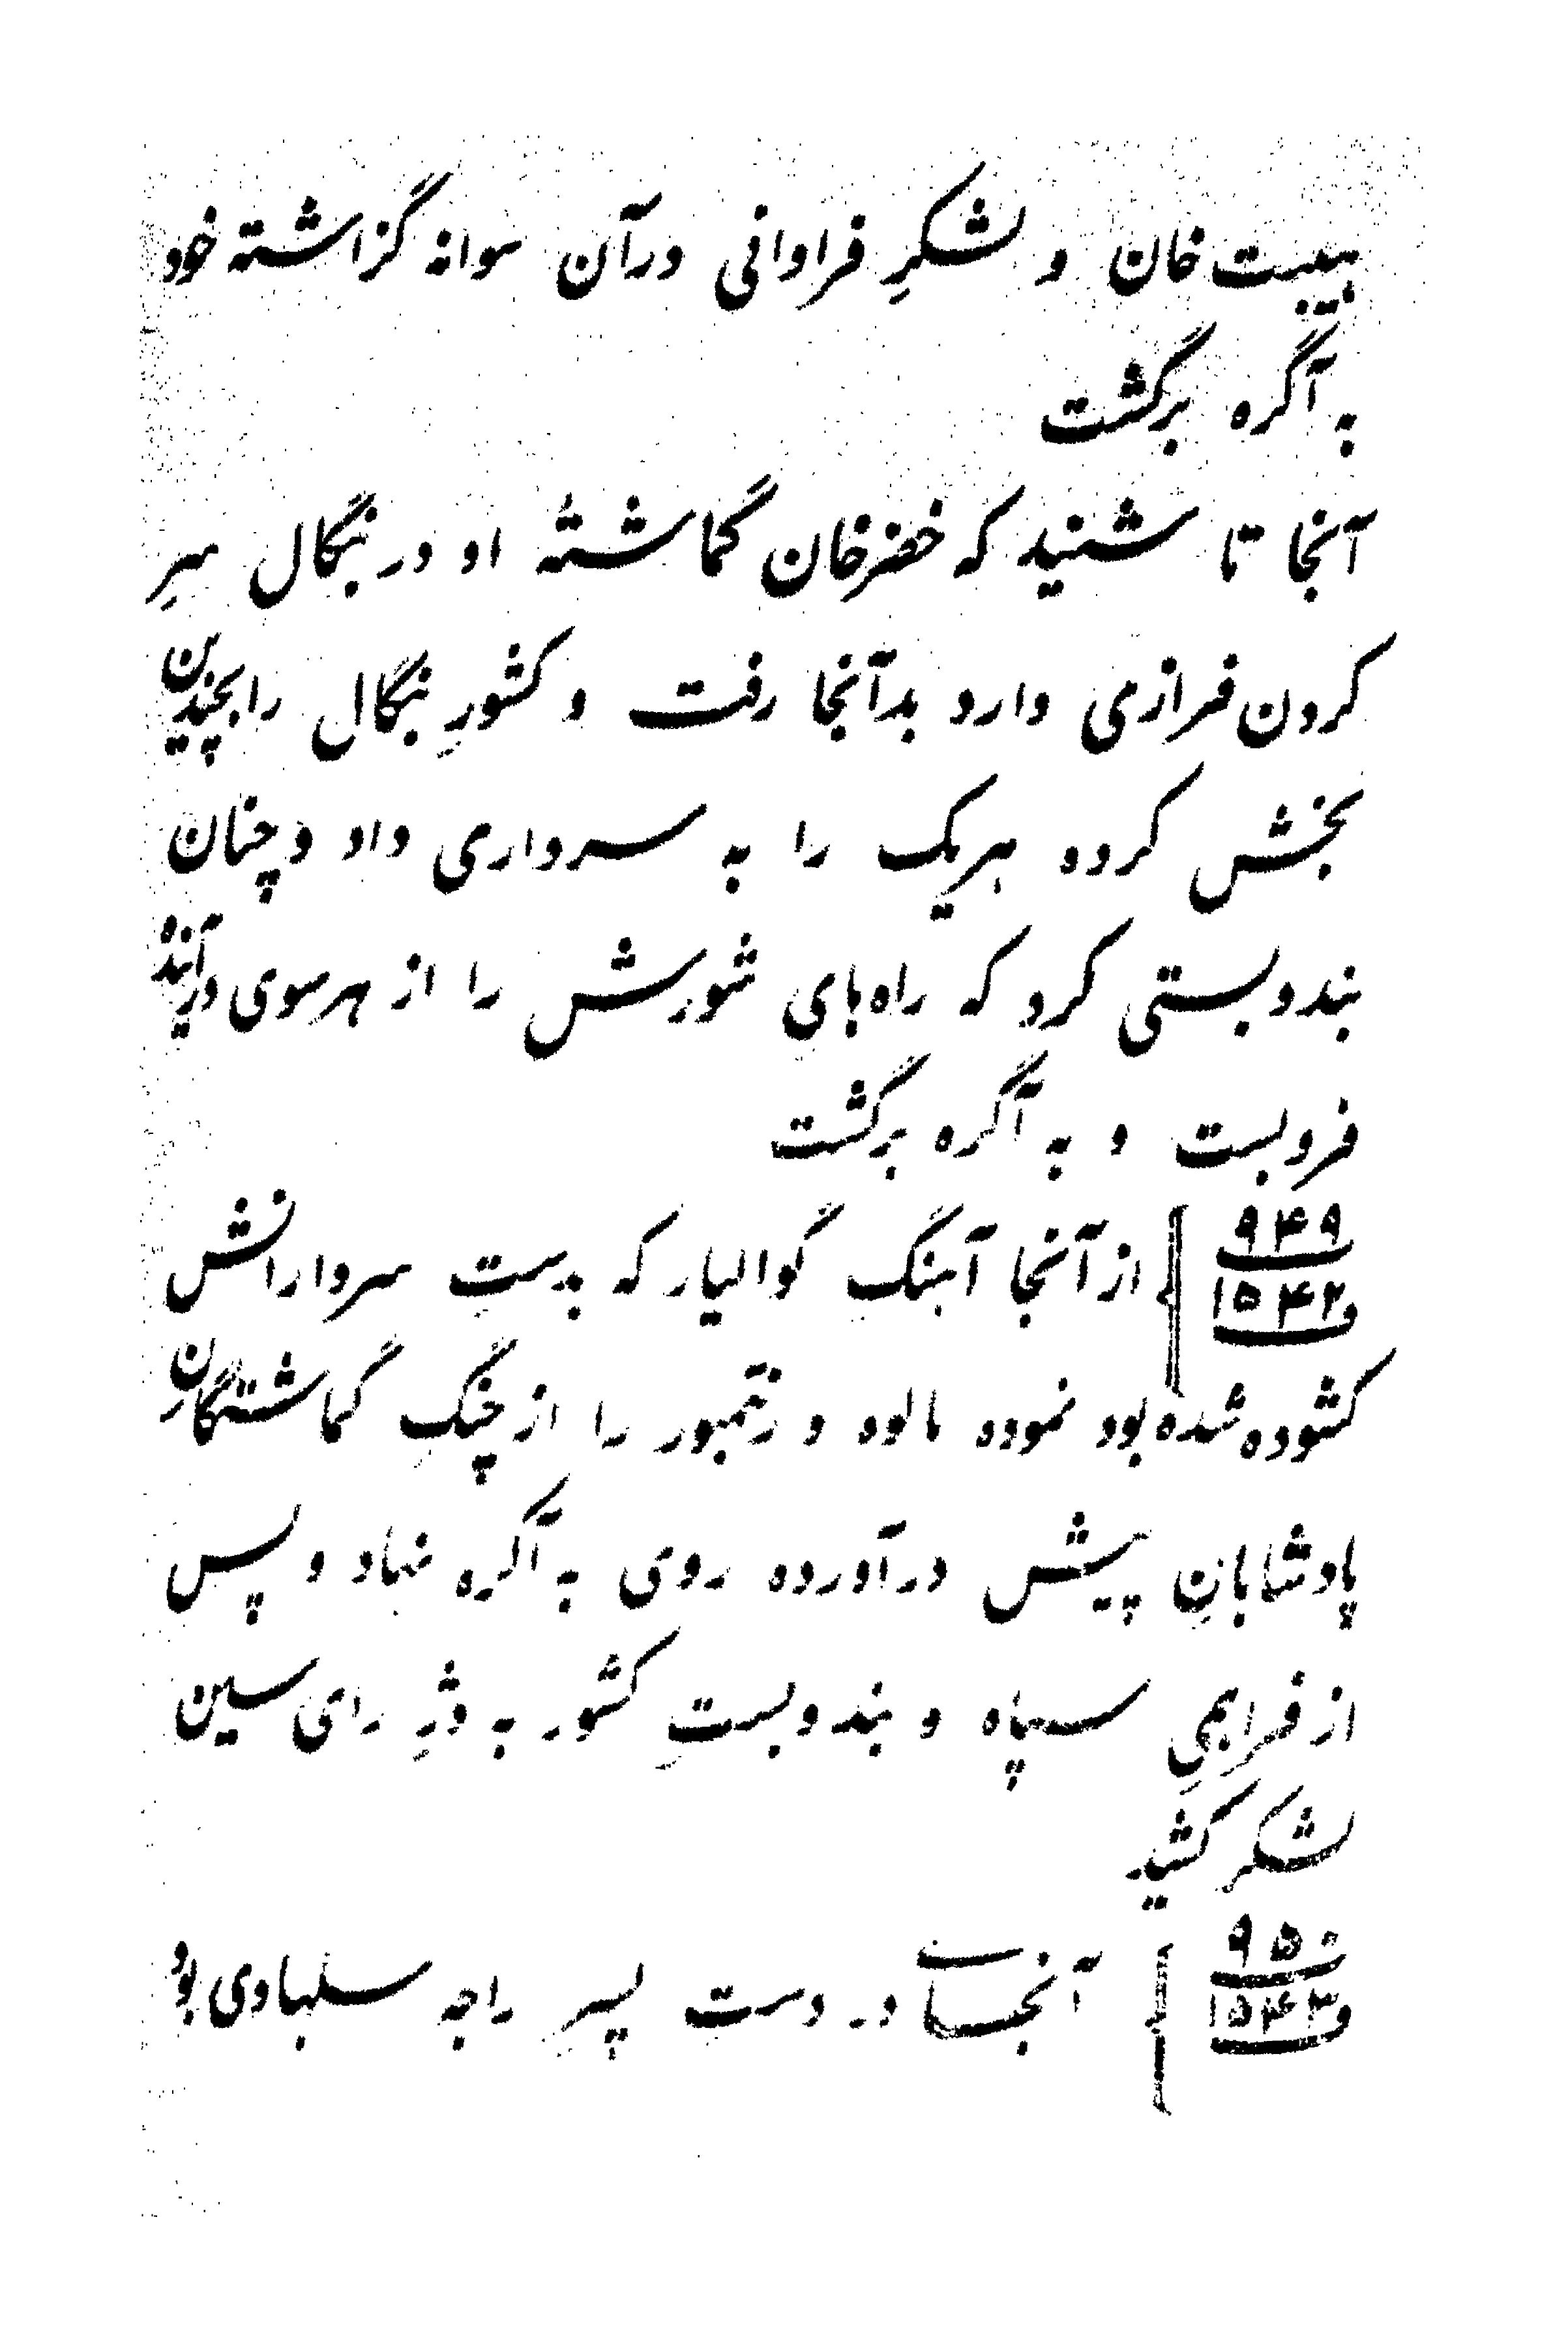 هیبت خان و لشکرِ فراوانی درآن سوانه گزاشته خود
به آگره برگشت
آنجا تا شنید که خضرخان گماشتهٔ او در بنگال سرِ
کردن فرازی دارد بدآنجا رفت و کشورِ بنگال را بچندین
بخش کرده هریک را به سرداری داد و چنان
بندوبستی کرد که راه‌های شورش را از هرسوی درآینده
فروبست و به آگره برگشت
۹۴۹ از آنجا آهنگ گوالیار که بدستِ سردارانش
۱۵۴۲
کشوده شده بود نموده مالوه و رنتمبور را از چنگِ گماشتگانِ
پادشاهانِ پیش درآورده روی به آگره نهاد و پس
از فراهمیِ سپاه و بندوبستِ کشور به دژِ رای سین
لشکر کشید
۹۵۰ آنجا در دست پسرِ راجه سلهادی بود
۱۵۴۳